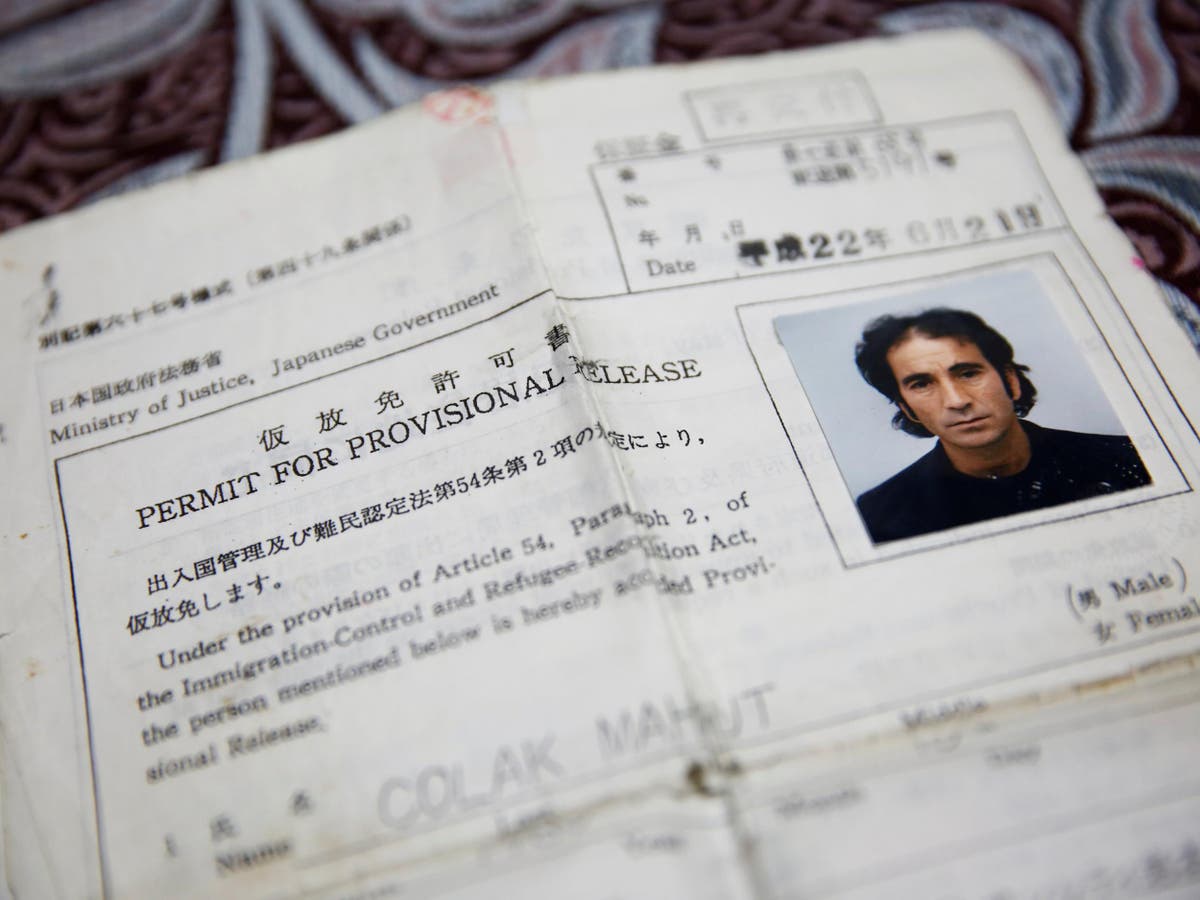 別記第六十七号様式（第四十九条関係）
日本国政府法務省
Ministry of Justice, Japanese Government
番 号
No
5191号
年 月 日
Date
平成22年 6月21日
仮 放 免 許 可 書
PERMIT FOR PROVISIONAL RELEASE
出入国管理及び難民認定法第54条第2項の規定により,
仮放免します。
Under the provision of Article 54, Paragraph 2, of
the Immigration-Control and Refugee-Recognition Act,
the person mentioned below is hereby accorded Provi-
sional Release.
(男 Male)
女 Femal
COLAK MAHUT
1 氏 名
Name
Last
Middle
Month